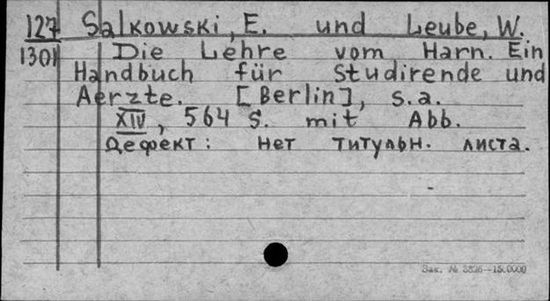 127 Salkowski, E. und Leube, W.
1301 Die Lehre vom Harn. Ein
Handbuch für Studirende und
Aerzte. [Berlin], s.a.
XIV, 564 S. mit Abb.
Дефект: нет титульн. листа.
Зак. №